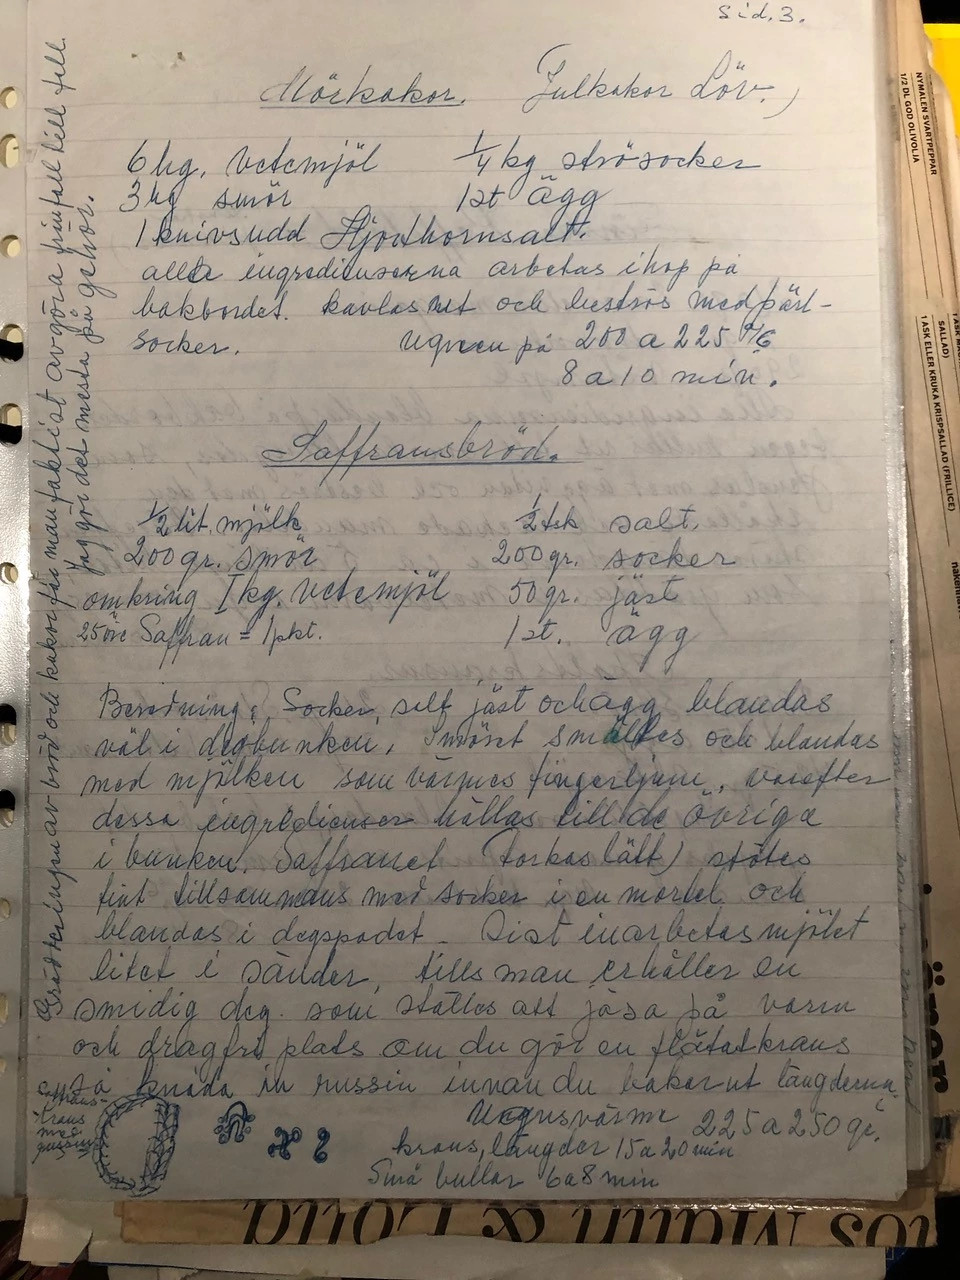 Sid. 3.
Mörkakor. (Julkakor Löv.)
6 hg. vetemjöl 1/4 kg strösocker
3 hg smör 1 st ägg
1 knivsudd Hjorthornsalt.
alla ingredienserna arbetas ihop på
bakbordet. kavlas ut och beströs med pärl-
socker. Ugnen på 200 a 225 %
8 a 10 min.
Saffransbröd.
1/2 lit. mjölk 1/2 tsk salt.
200 gr. smör 200 gr. socker
omkring 1 kg. vetemjöl 50 gr. jäst
25 öre Saffran = 1 pkt. 1 st. ägg
Beredning: Socker, salt jäst och ägg blandas
väl i degbunken. Smöret smältes och blandas
med mjölken som värmes fingerljum, varefter
dessa ingredienser hällas till de övriga
i bunken. Saffranet (torkas lätt) stötes
fint tillsammans med socker i en mortel och
blandas i degspadet. Sist inarbetas mjölet
litet i sänder, tills man erhåller en
smidig deg. som ställes att jäsa på varm
och dragfri plats om du gör en flätat krans
så knåda in russin innan du bakar ut längderna
Ugnsvärme 225 a 250 gr.
krans, längder 15 a 20 min
Små bullar 6 a 8 min
saffrans-
krans
med
russin
Gräddningen av bröd och kakor får man faktist avgöra från fall till fall.
Jag gör det mesta på gehör.
NYMALEN SVARTPEPPAR
1/2 DL GOD OLIVOLJA
SALLAD)
1 ASK ELLER KRUKA KRISPSALLAD (FRILLICE)